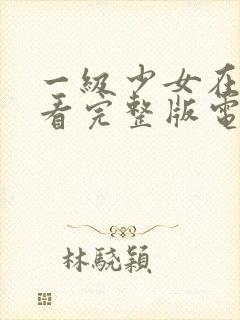 一級少女在
看完整版電
林驍穎